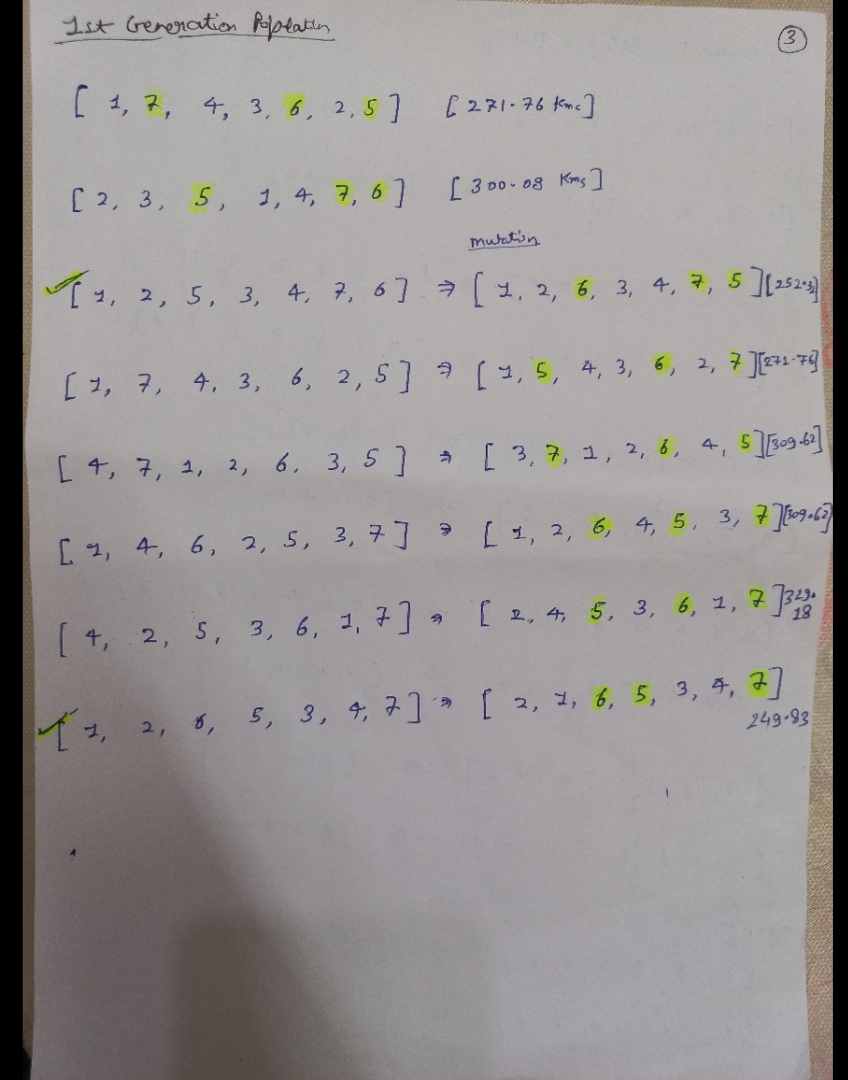 1st Generation Population
3
[ 1, 7, 4, 3, 6, 2, 5 ] [ 271.76 Kms ]
[ 2, 3, 5, 1, 4, 7, 6 ] [ 300.08 Kms ]
mutation
[ 1, 2, 5, 3, 4, 7, 6 ] ⇒ [ 1, 2, 6, 3, 4, 7, 5 ] [252.32]
[ 1, 7, 4, 3, 6, 2, 5 ] ⇒ [ 1, 5, 4, 3, 6, 2, 7 ] [271.76]
[ 4, 7, 1, 2, 6, 3, 5 ] ⇒ [ 3, 7, 1, 2, 6, 4, 5 ] [309.62]
[ 1, 4, 6, 2, 5, 3, 7 ] ⇒ [ 1, 2, 6, 4, 5, 3, 7 ] [309.62]
[ 4, 2, 5, 3, 6, 1, 7 ] ⇒ [ 2, 4, 5, 3, 6, 1, 7 ] 329.
18
[ 1, 2, 6, 5, 3, 4, 7 ] ⇒ [ 2, 1, 6, 5, 3, 4, 7 ]
249.83